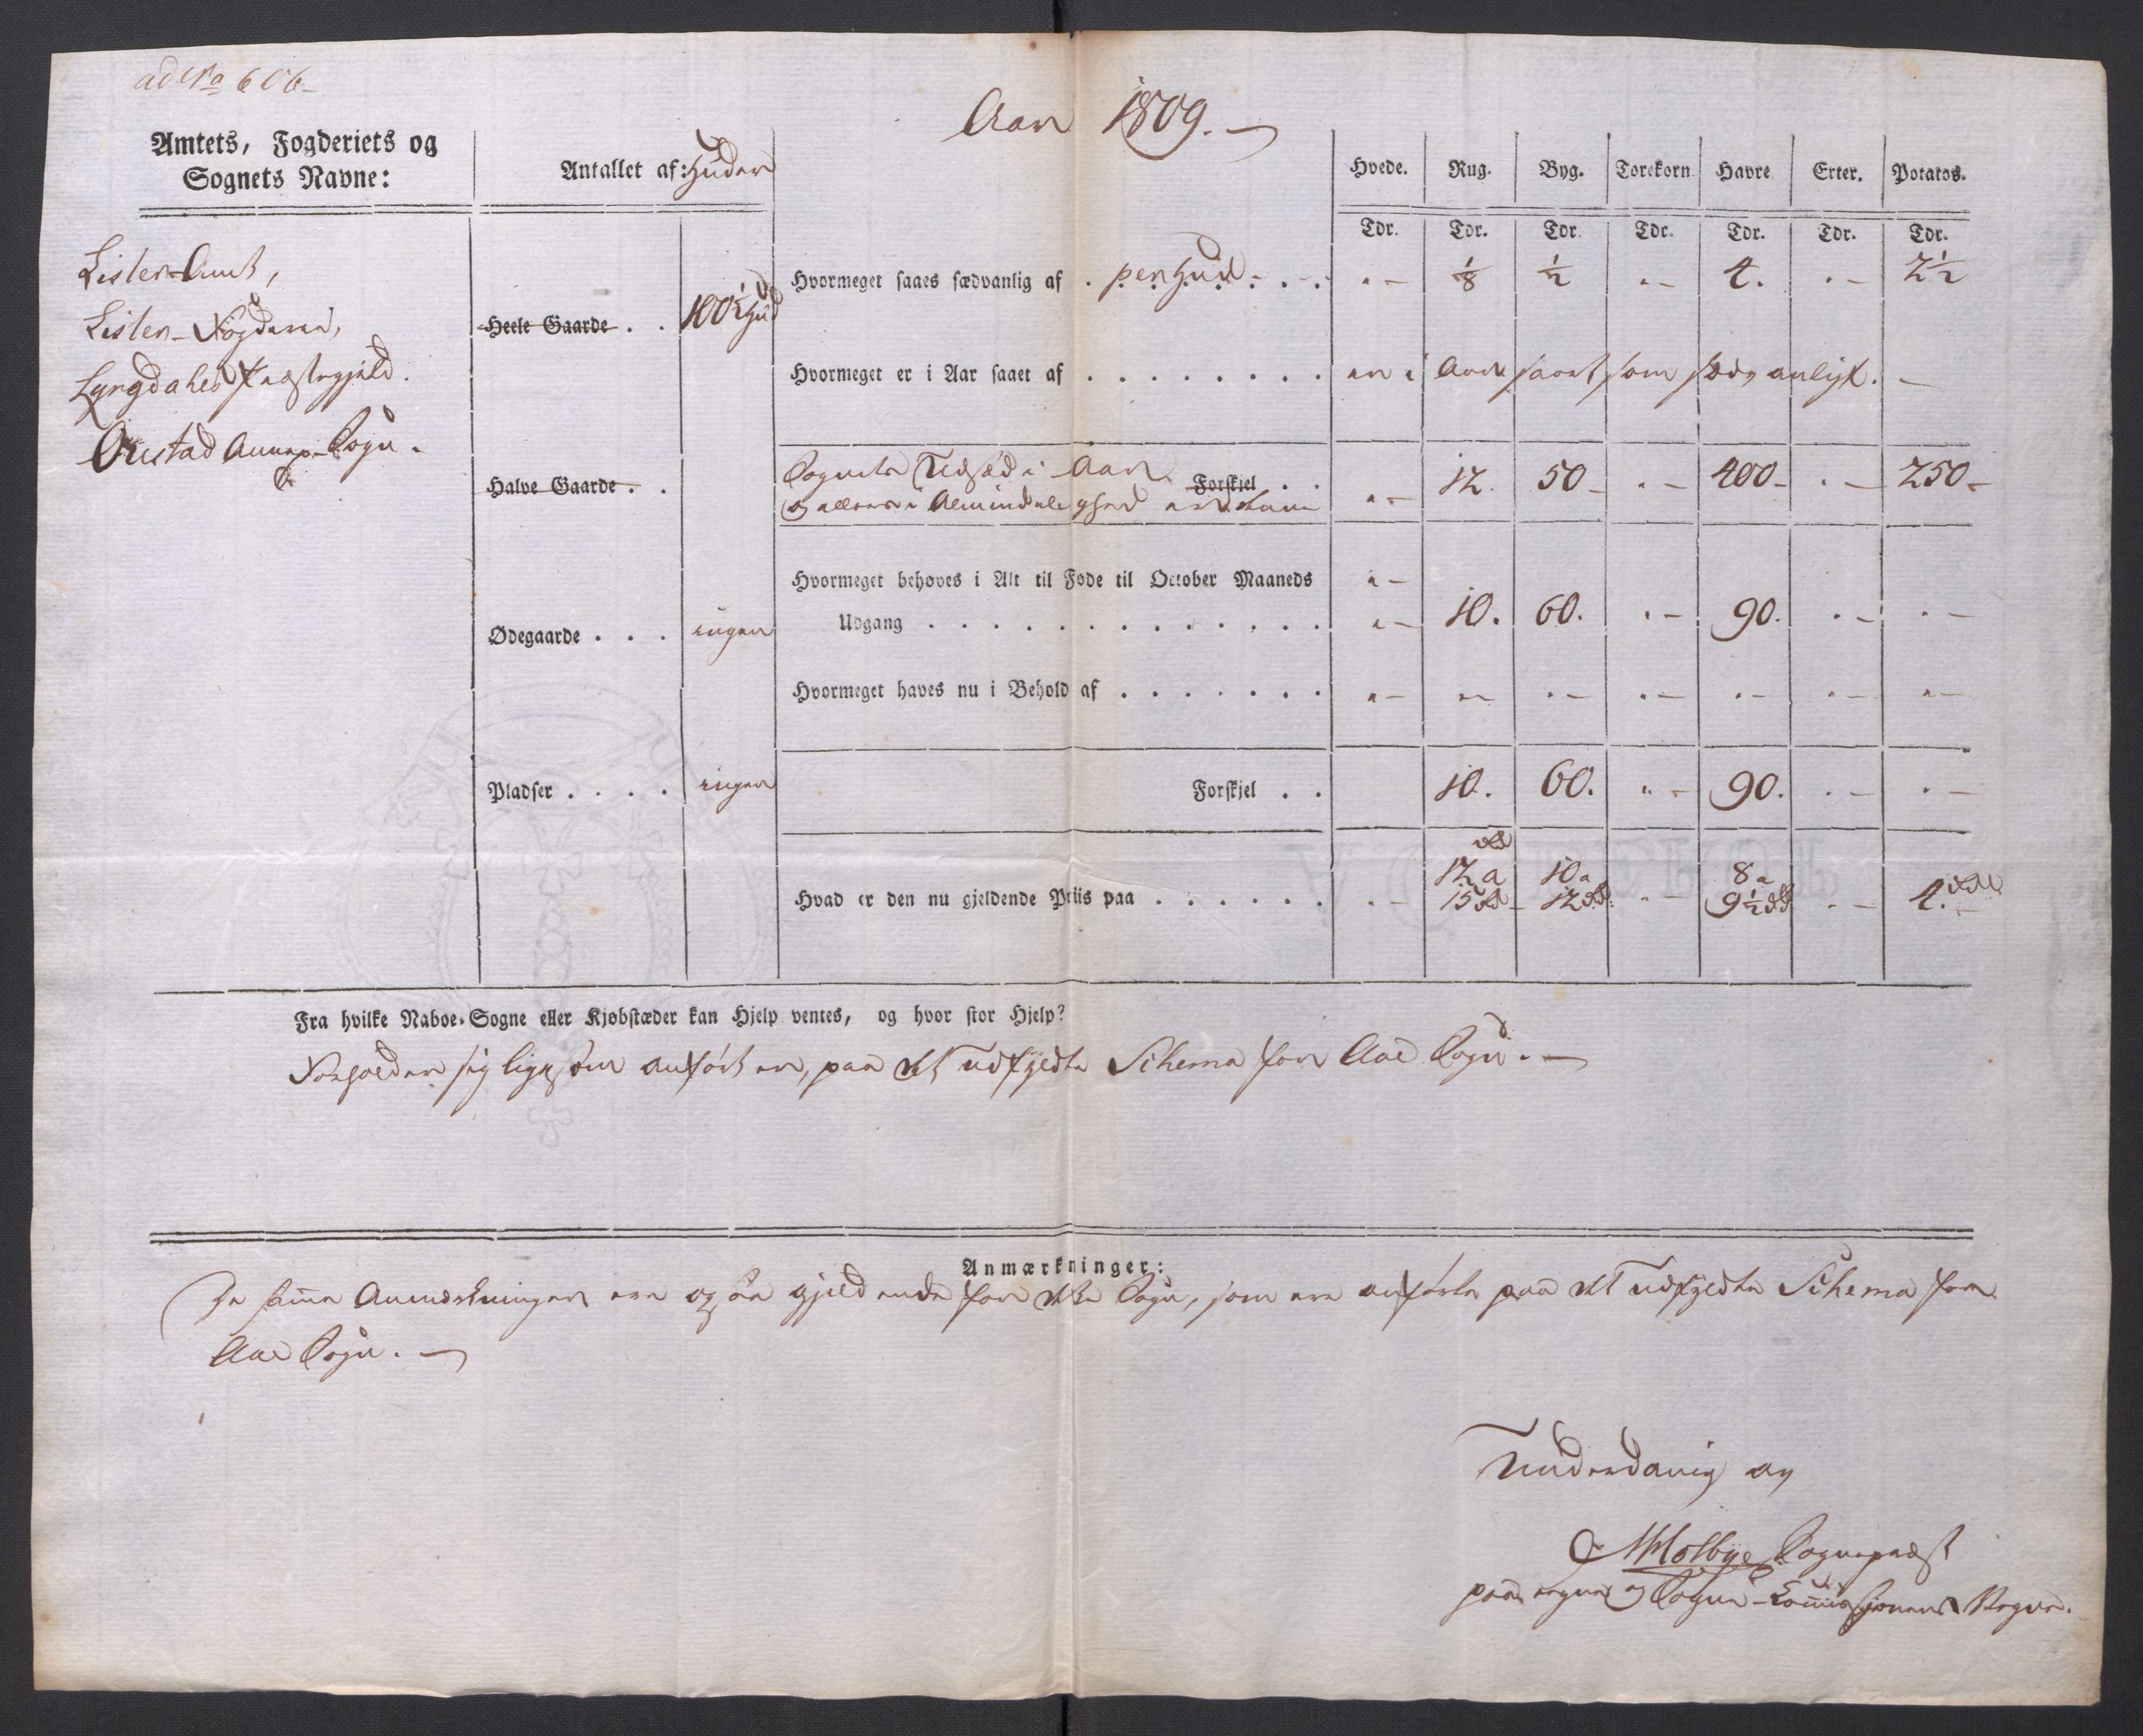 ad No 606
Aar 1809.
Amtets, Fogderiets og
Sognets Navne:
Antallet af: Huder
Hvede. Rug. Byg. Torekorn Havre Erter. Potatos.
Tdr. Tdr. Tdr. Tdr. Tdr. Tdr. Tdr.
Lister-Amt,
Lister-Fogderie,
Lyngdahls Præstegjeld.
Qvistad Annex-Sogn.
Heele Gaarde . . 100½ Hud
Halve Gaarde . .
Ødegaarde . . . ingen
Pladser . . . . ingen
Hvormeget saaes sædvanlig af . per Hud - . . . „ – ⅛ ½ „ – 4. „ – 2½
Hvormeget er i Aar saaet af . . . . . . . . er i Aar saaet som sædvanligt. –
Sognets Udsæd i Aar Forskjel . .
og ellers i Almindelighed „ – 12. 50 – „ – 400 – „ – 250 –
Hvormeget behøves i Alt til Føde til October Maaneds „ –
Udgang . . . . . . . . . . . . . „ – 10. 60. „ – 90. „ – „ –
Hvormeget haves nu i Behold af . . . . . . . „ – „ – „ – „ – „ – „ – „ –
Forskjel . . 10. 60. „ – 90. „ – „ –
rd
12 a 10 a 8 a
Hvad er den nu gjeldende Priis paa . . . . . . „ – 15 rd – 12 rd. „ – 9½ rd „ – 4. rd –
Fra hvilke Naboe-Sogne eller Kjøbstæder kan Hjelp ventes, og hvor stor Hjelp?
Forholder sig ligesom anført er, paa det udfyldte Schema for Aae Sogn. –
Anmærkninger:
De samme Anmærkninger ere ogsaa gjeldende for dette Sogn, som ere anførte paa det udfyldte Schema for
Aae Sogn. –
Underdanig af
Molbye Sognepræst
paa egne og Sogne-Commissionens Vegne.